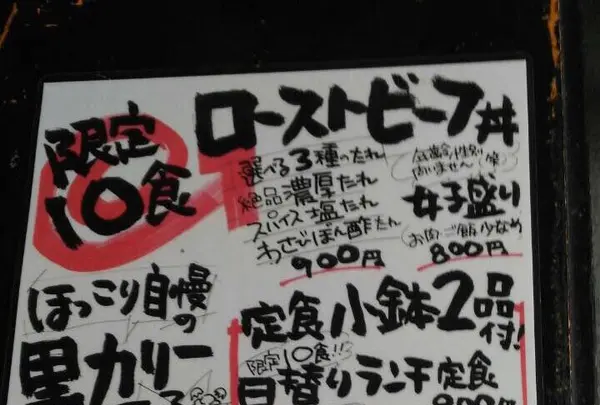 限定
10食
ローストビーフ丼
選べる3種のたれ
絶品濃厚たれ
スパイス塩たれ
わさびぽん酢たれ
900円
年齢性別
問いません(笑)
女子盛り
(お肉・ご飯少なめ)
800円
ほっこり自慢
の
黒カリー
定食小鉢2品付!
限定10食!!
日替りランチ定食